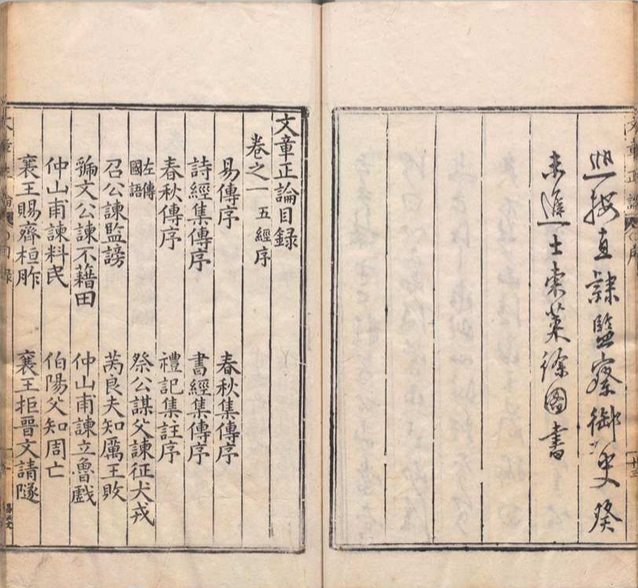 巡按直隸監察御史癸
未進士東萊徐圖書
文章正論目錄
卷之一 五經序
易傳序 春秋集傳序
詩經集傳序 書經集傳序
春秋傳序 禮記集註序
左傳
國語
祭公謀父諫征犬戎
召公諫監謗 芮良夫知厲王敗
虢文公諫不藉田 仲山甫諫立魯戲
仲山甫諫料民 伯陽父知周亡
襄王賜齊桓胙 襄王拒晉文請隧